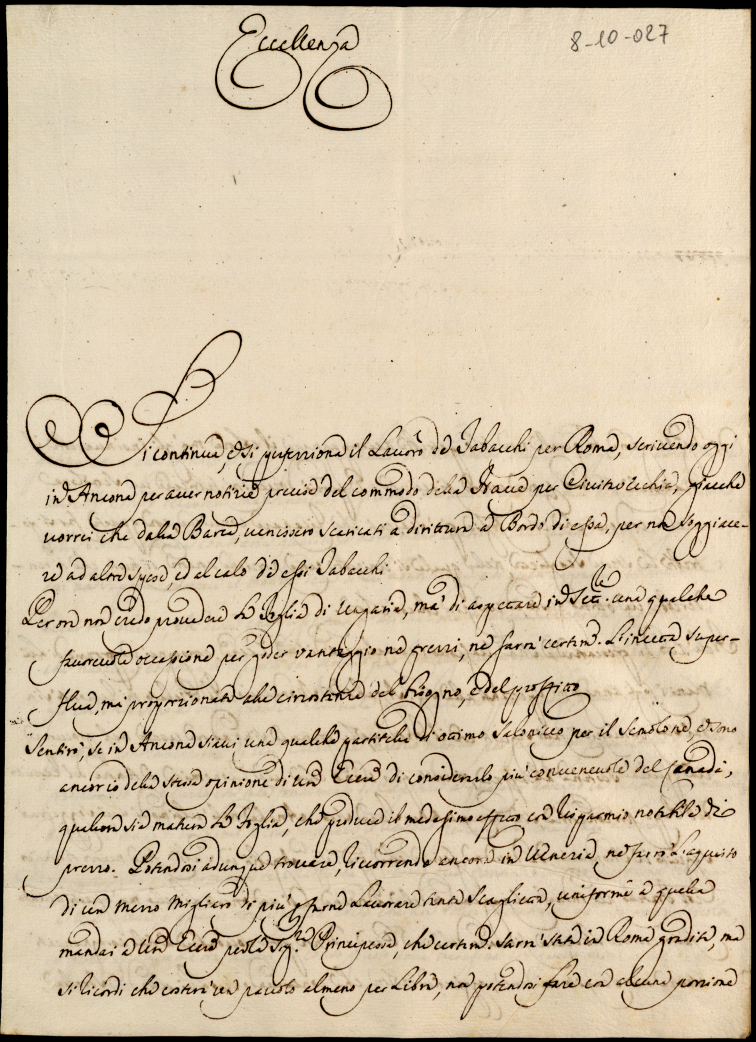 Eccellenza
8-10-027
Si continua, e si perfeziona il Lavoro de Tabacchi per Roma, scrivendo oggi
in Ancona per aver notizie precise del commodo della per Civitavecchia, giacche
vorrei che dalla Barca, venissero scaricati a dirittura a Bordo di essa, per non soggiace-
re ad altre spese, ed al calo de essi Tabacchi
Per ora non credo provedere la foglia di Ungaria, ma di aspettare in una qualche
favorevole occasione per goder vantaggio ne prezzi, ne farò certam. L'incetta super-
flua, ma proporzionata alle circostanze del bisogno, e del profitto
Sentirò, se in Ancona siavi una qualche partitella di ottimo Salonicco per il Semolone, e sono
ancor io della stessa opinione di Vra Ecca di considerarlo più convenevole del Canadà,
qualora sia matura la foglia, che produce il medesimo effetto con risparmio notabile di
prezzo. Potendosi adunque trovare, ricorrendo ancora in Venezia, ne farò l'aquisto
di un mezzo Migliaro di più farne Lavorare tanta Scaglietta, uniforme a quella
mandai a Vra Ecca per la Sigra Principessa, che certam. sarà stata in Roma gradita, ma
si ricordi che costerà un paolo almeno per Libra, non potendosi fare con alcuna porzione